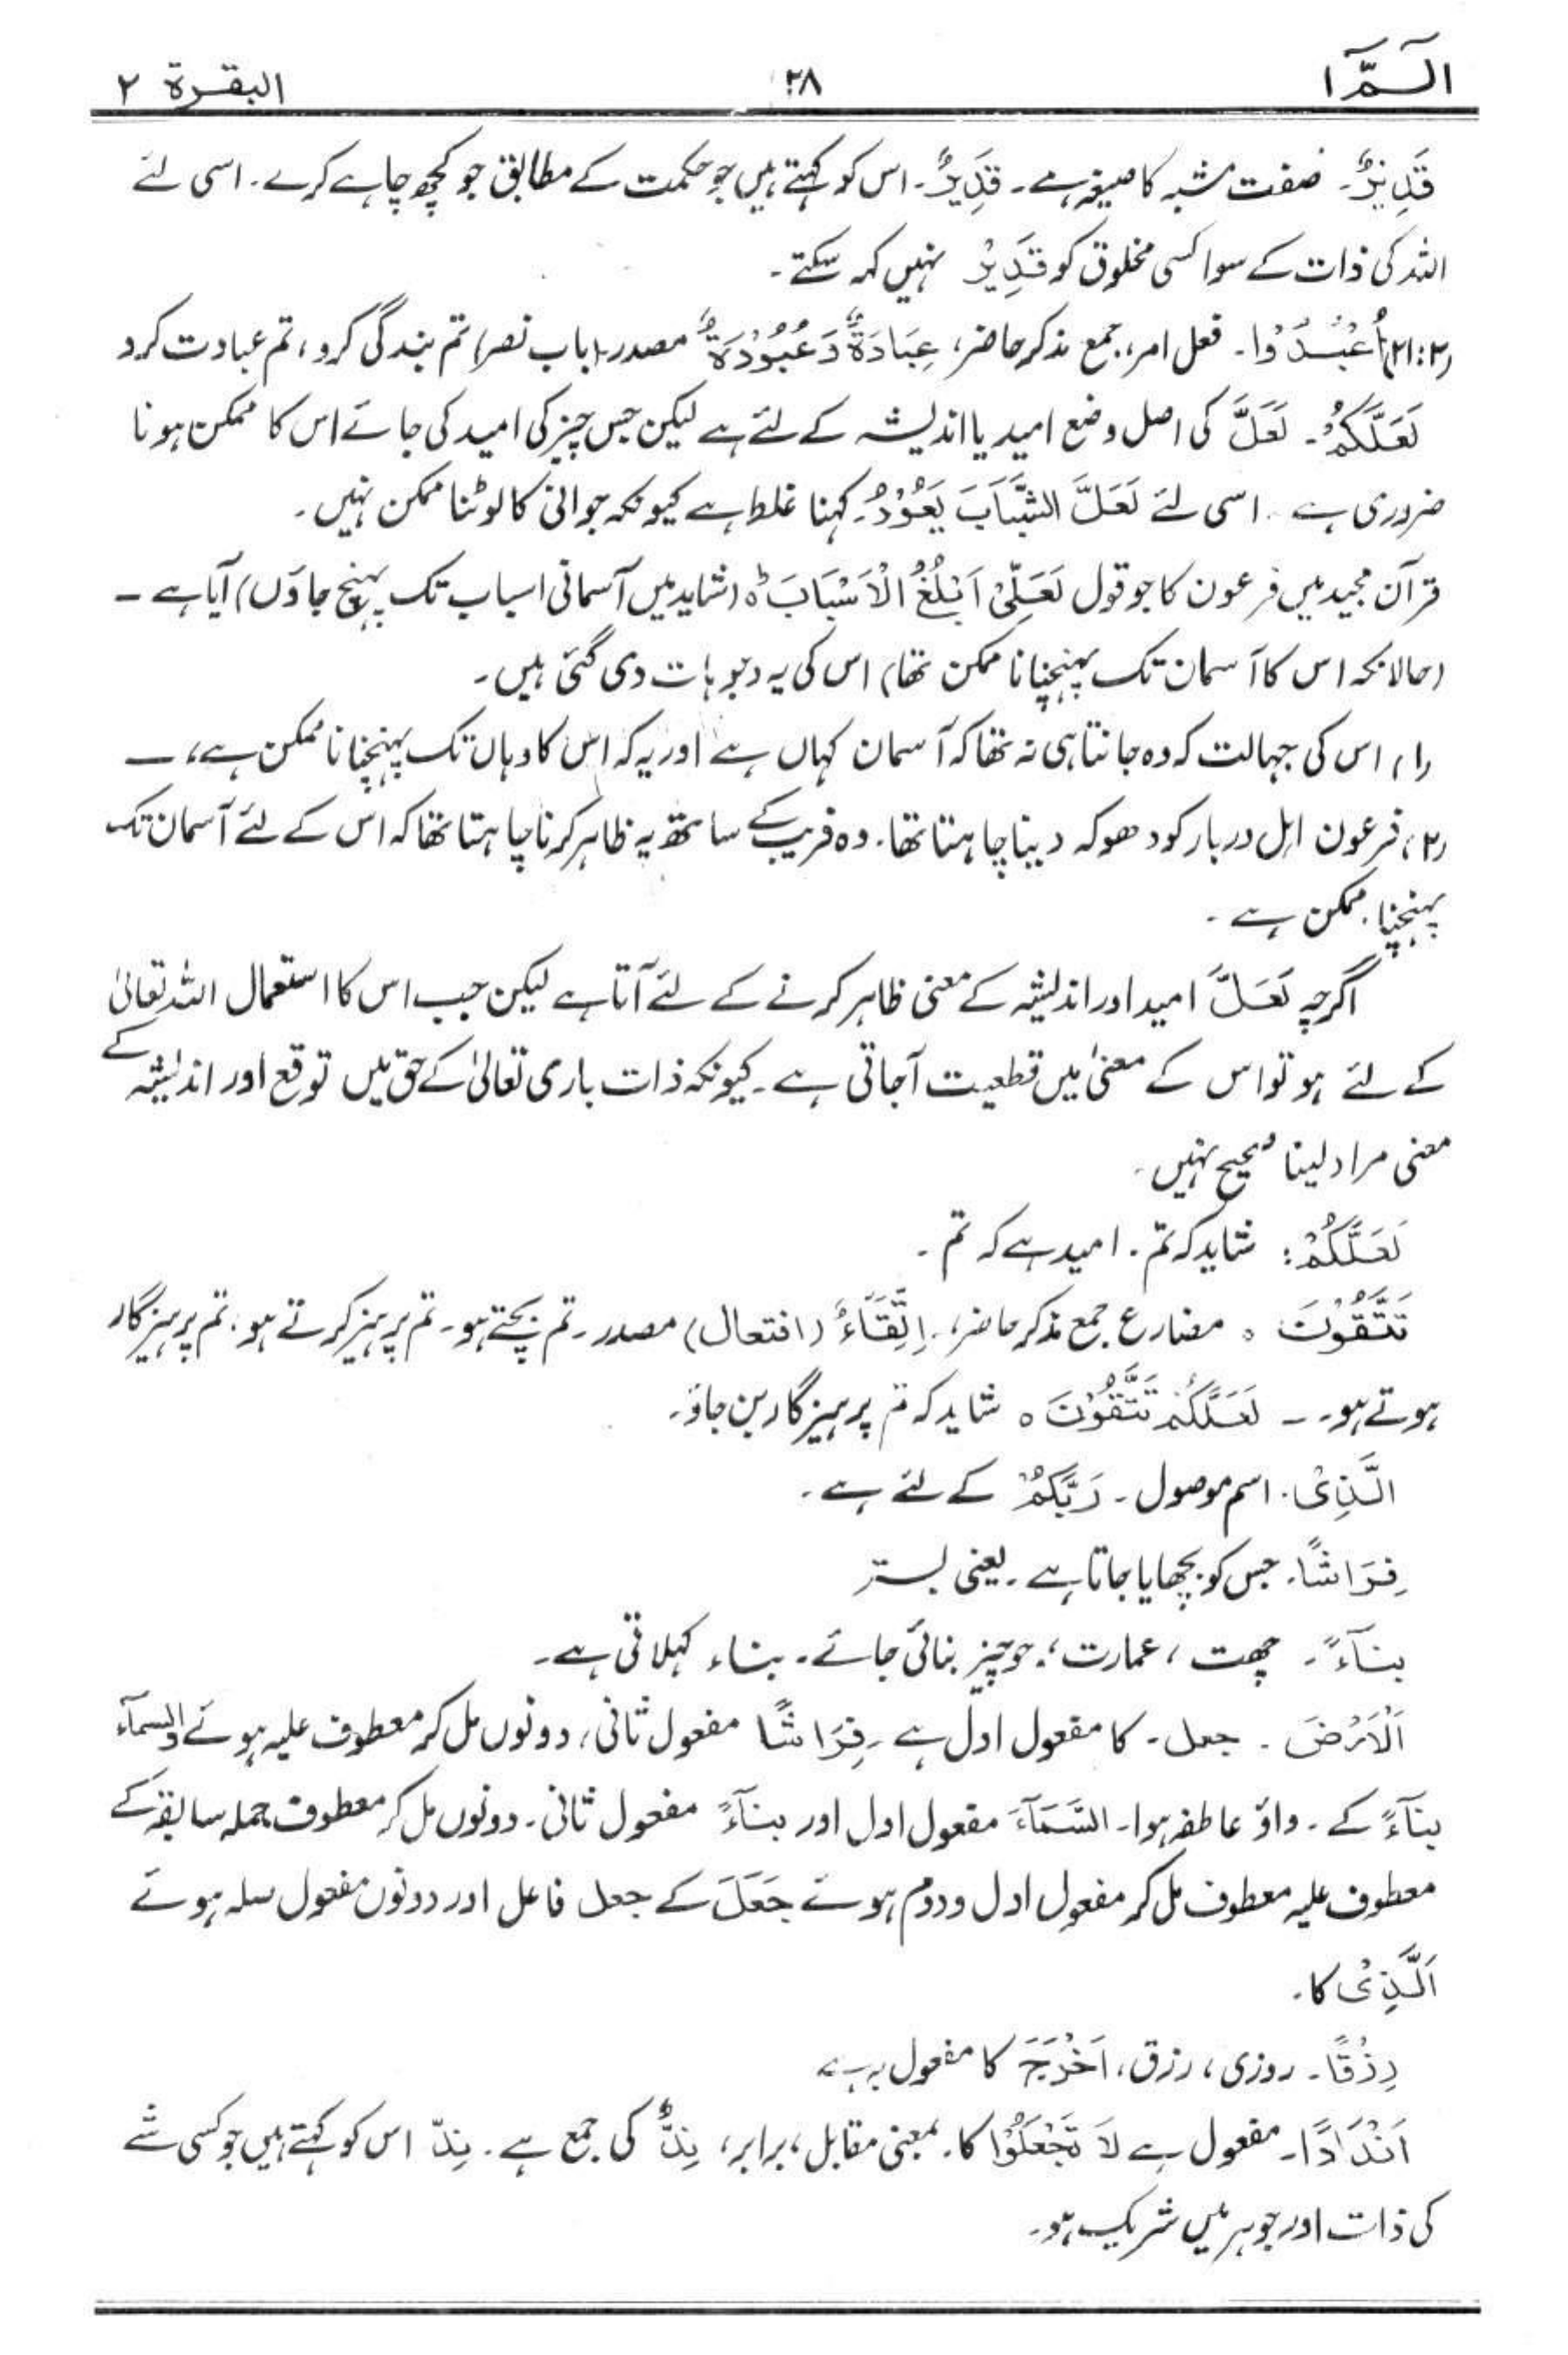 الٓـمّٓ ١ ٢٨ البقرة ٢
قَدِيْرٌ۔ صفت مشبہ کا صیغہ ہے۔ قَدِيْرٌ۔ اس کو کہتے ہیں جو حکمت کے مطابق جو کچھ چاہے کرے۔ اسی لئے
اللہ کی ذات کے سوا کسی مخلوق کو قَدِيْرٌ نہیں کہہ سکتے۔
(٢:٢١) اُعْبُدُوْا۔ فعل امر، جمع مذکر حاضر، عِبَادَةٌ وَعُبُوْدَةٌ مصدر (باب نصر) تم بندگی کرو، تم عبادت کرو
لَعَلَّكُمْ۔ لَعَلَّ کی اصل وضع امید یا اندیشہ کے لئے ہے لیکن جس چیز کی امید کی جائے اس کا ممکن ہونا
ضروری ہے۔ اسی لئے لَعَلَّ الشَّبَابَ يَعُوْدُ۔ کہنا غلط ہے کیونکہ جوانی کا لوٹنا ممکن نہیں۔
قرآن مجید میں فرعون کا جو قول لَعَلِّىْ اَبْلُغُ الْاَسْبَابَ ہ (شاید میں آسمانی اسباب تک پہنچ جاؤں) آیا ہے ــ
(حالانکہ اس کا آسمان تک پہنچنا نا ممکن تھا) اس کی یہ وجوہات دی گئی ہیں۔
(١) اس کی جہالت کہ وہ جانتا ہی نہ تھا کہ آسمان کہاں ہے اور یہ کہ اس کا وہاں تک پہنچنا نا ممکن ہے، ــ
(٢) فرعون اہل دربار کو دھوکہ دینا چاہتا تھا۔ وہ فریب کے ساتھ یہ ظاہر کرنا چاہتا تھا کہ اس کے لئے آسمان تک
پہنچنا ممکن ہے۔
اگرچہ لَعَلَّ امید اور اندیشہ کے معنی ظاہر کرنے کے لئے آتا ہے لیکن جب اس کا استعمال اللہ تعالیٰ
کے لئے ہو تو اس کے معنیٰ میں قطعیت آجاتی ہے۔ کیونکہ ذات باری تعالیٰ کے حق میں توقع اور اندیشہ کے
معنی مراد لینا صحیح نہیں۔
لَعَلَّكُمْ: شاید کہ تم۔ امید ہے کہ تم۔
تَتَّقُوْنَ ہ مضارع جمع مذکر حاضر، اِتِّقَاءٌ (افتعال) مصدر۔ تم بچتے ہو۔ تم پرہیز کرتے ہو۔ تم پرہیزگار
ہوتے ہو۔ ــ لَعَلَّكُمْ تَتَّقُوْنَ ہ شاید کہ تم پرہیزگار بن جاؤ۔
الَّذِىْ۔ اسم موصول۔ رَبَّكُمْ کے لئے ہے۔
فِرَاشًا۔ جس کو بچھایا جاتا ہے۔ یعنی بستر
بِنَآءً۔ چھت، عمارت، جو چیز بنائی جائے۔ بناء کہلاتی ہے۔
اَلْاَرْضَ۔ جعل۔ کا مفعول اول ہے۔ فِرَاشًا مفعول ثانی، دونوں مل کر معطوف علیہ ہوئے والسمآء
بنآءً کے۔ واؤ عاطفہ ہوا۔ السَّمَآءَ مفعول اول اور بنآءً مفعول ثانی۔ دونوں مل کر معطوف جملہ سابقہ کے
معطوف علیہ معطوف مل کر مفعول اول ودوم ہوئے جَعَلَ کے جعل فاعل اور دونوں مفعول سلہ ہوئے
اَلَّذِىْ کا۔
رِزْقًا۔ روزی، رزق، اَخْرَجَ کا مفعول بہ ہے
اَنْدَادًا۔ مفعول ہے لَا تَجْعَلُوْا کا۔ بمعنی مقابل، برابر، نِدٌّ کی جمع ہے۔ نِدّ اس کو کہتے ہیں جو کسی شے
کی ذات اور جوہر میں شریک ہو۔